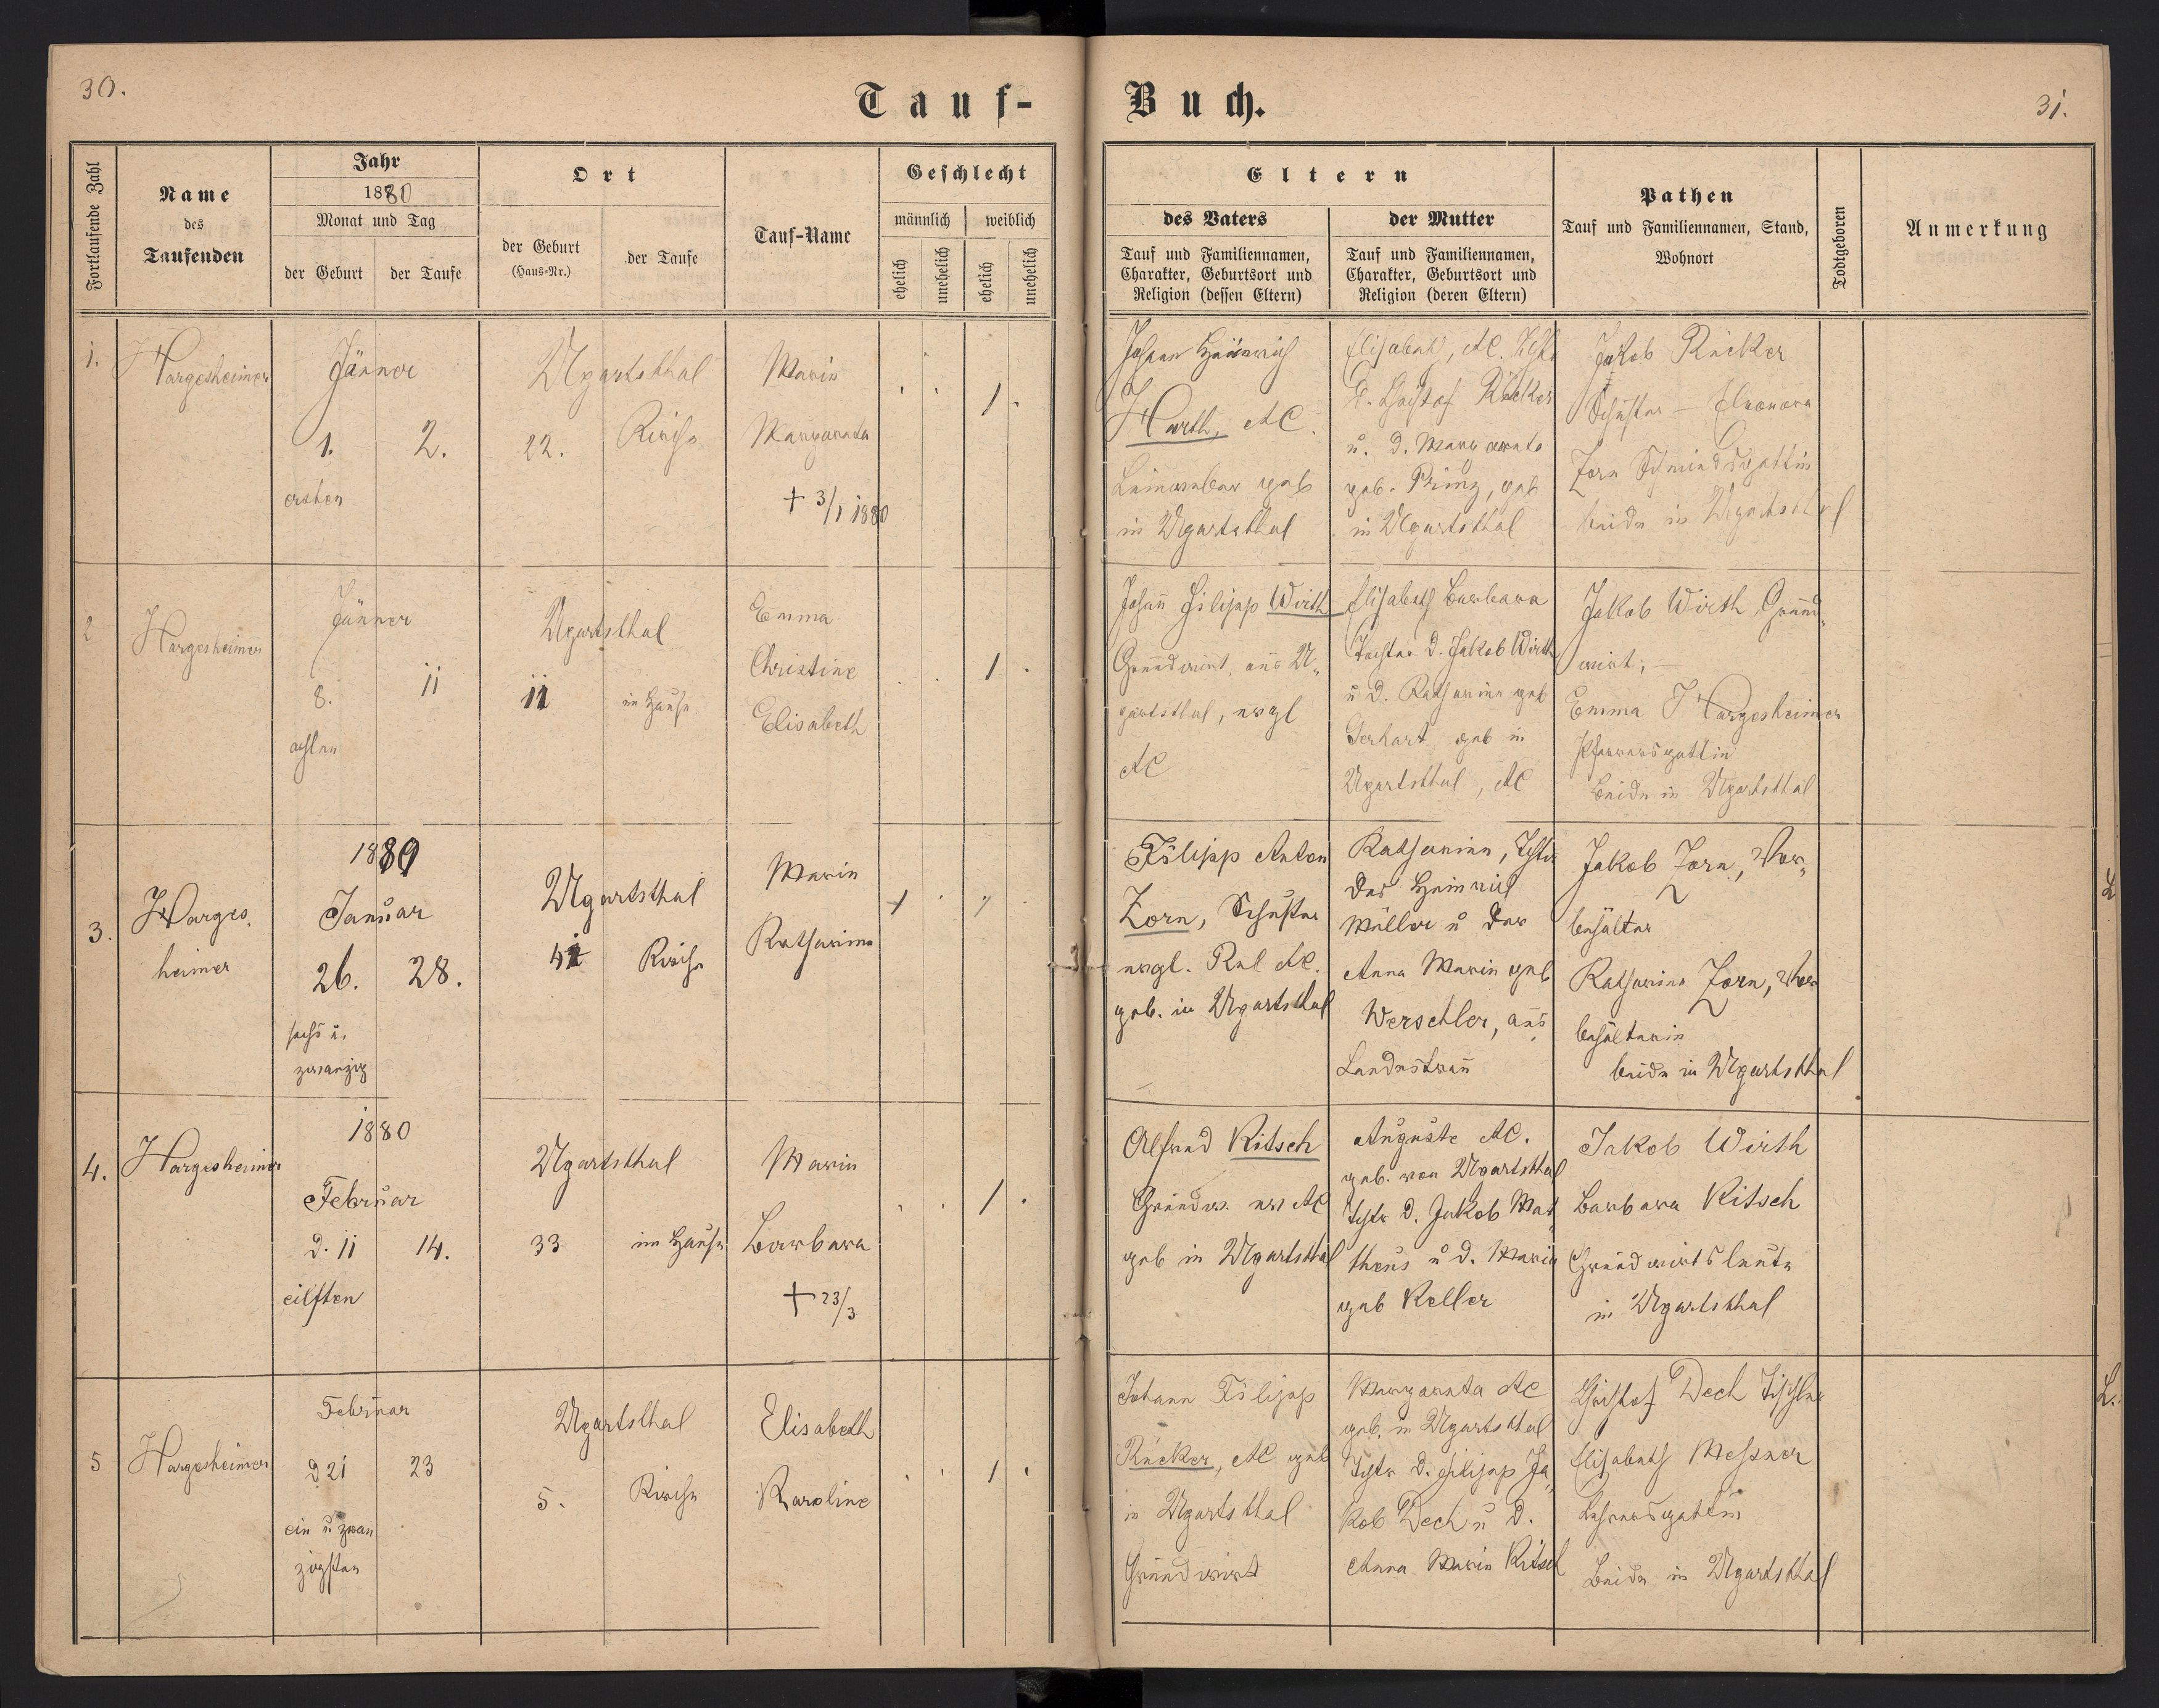 30.
Tauf-
Buch.
31.
Fortlaufende Zahl
Name
des
Taufenden
Jahr
1880
Monat und Tag
der Geburt
der Taufe
Ort
der Geburt
(Haus-Nr.)
der Taufe
Tauf-Name
Geschlecht
männlich
weiblich
ehelich
unehelich
ehelich
unehelich
Eltern
des Vaters
Tauf und Familiennamen,
Charakter, Geburtsort und
Religion (dessen Eltern)
der Mutter
Tauf und Familiennamen,
Charakter, Geburtsort und
Religion (deren Eltern)
Pathen
Tauf und Familiennamen, Stand,
Wohnort
Todtgeboren
Anmerkung
1.
Hargesheimer
Jänner
1.
2.
ersten
Ugartsthal
22.
Kirche
Marie
Margareta
+ 3/1 1880
1
Johann Heinrich
Harth, AC.
Leinweber geb
in Ugartsthal
Elisabeth, AC. Tcht
d. Christof Rücker
u. d. Margareta
geb. Prinz, geb
in Ugartsthal
Jakob Rücker
Schuster – Eleonora
Zorn Schmiedsgattin
beide in Ugartsthal
2
Hargesheimer
Jänner
8.
11
achten
Ugartsthal
11
im Hause
Emma
Christine
Elisabeth
1
Johann Filipp Wirth
Grundwirt, aus U-
gartsthal, evgl
AC
Elisabeth Barbara
Tochter d. Jakob Wirth
u d. Katharina geb
Gerhart geb in
Ugartsthal, AC
Jakob Wirth Grund-
wirt; –
Emma Hargesheimer
Pfarrersgattin
beide in Ugartsthal
3.
Harges-
heimer
1880
Januar
26.
28.
sechs u.
zwanzig
Ugartsthal
Kirche
Marie
Katharina
Filipp Anton
Zorn, Schuster
evgl. Rel AC.
geb. in Ugartsthal
Katharina, Tchtr
des Heinrich
Müller u der
Anna Maria geb
Werschler, aus
Landestreu
Jakob Zorn, Vor-
behälter
Katharina Zorn, Vor
behälterin
beide in Ugartsthal
4.
Hargesheimer
1880
Februar
d. 11
14.
eilften
Ugartsthal
33
im Hause
Marie
Barbara
+ 23/3
1
Alfred Ritsch
Grundw. ev AC
geb in Ugartsthal
Auguste AC.
geb. von Ugartsthal
Tchtr d. Jakob Mat-
theus u d. Maria
geb Keller
Jakob Wirth
Barbara Ritsch
Grundwirtsleute
in Ugartsthal
5
Hargesheimer
Februar
d 21
23
ein u zwan
zigsten
Ugartsthal
5.
Kirche
Elisabeth
Karoline
1
Johann Filipp
Rücker, AC geb
in Ugartsthal
Grundwirt
Margareta AC
geb. in Ugartsthal
Tchtr d. Filipp Ja-
kob Dech u d.
Anna Maria Ritsch
Christof Dech Tischler
Elisabeth Messner
Lehrersgattin
Beide in Ugartsthal